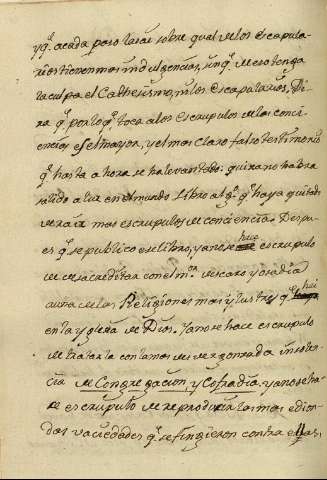 y q̃. acada paso tasan sobre qual de los Escapula
rios tienen mas indulgencias, sin q̃. de eso tenga
la culpa el Cathesismo, ni los escapularios. Di
ra q̃. por lo q̃. toca a los escrupulos de los conci
encias es el mayor, y el mas claro falso testimonio
q̃ hasta a hora se ha levantado: quiza no habra
salido a luz en el mundo Libro alg.º q̃. haya quitado
de raiz mas escrupulos de conciencia. Despu
es q̃. se publico ese libro, ya no se hace escrupulo
de desacreditar con el m.ᵒʳ descaro y osadia
una de las Religiones mas ylustres q̃. hai
en la yglesia de Dios. Ya no se hace escrupulo
de tratarla con la mas desvergonzada insolen
cia de Congregacion, y Cofradia. ya no se ha
ce escrupulo de reproducir las mas edion
das vaciedades q̃. se fingieron contra ellas,